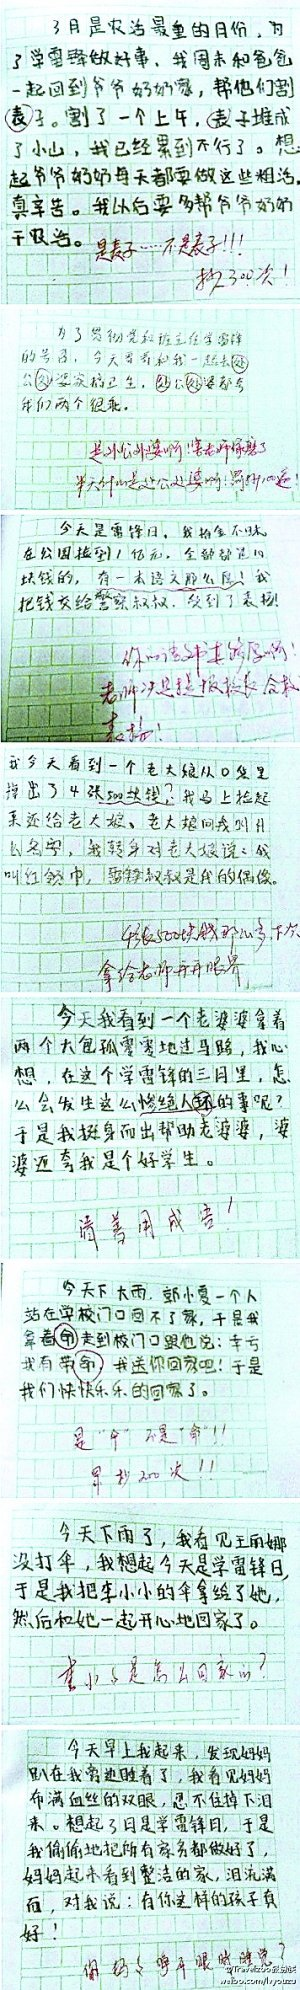 3月是农活最重的日份，为
了学雷锋做好事，我周末和爸爸
一起回到爷爷奶奶家，帮他们割
表子。割了一个上午，表子堆成
了小山，我已经累到不行了。想
起爷爷奶奶每天都要做这些粗活，
真辛苦。我以后要多帮爷爷奶奶
干农活。
是麦子……不是表子!!!
抄300次！
为了贯彻党和班主任学雷锋
的号召，今天哥哥和我一起去处
公处婆家搞卫生，处公处婆都夸
我们两个很乖。
是外公外婆啊！害老师
半天什么是处公处婆啊！罚抄100遍！
今天是雷锋日，我拾金不昧
在公园捡到1亿元，全部都是10
块钱的，有一本语文那么厚！我
把钱交给警察叔叔，受到了表扬！
你的语文书真够厚啊！
老师决定提报校长
表扬！
我今天看到一个老大娘从口袋里
掉出了4张500块钱？我马上捡起
来还给老大娘。老大娘问我叫什
么名字，我转身对老大娘说：我
叫红领巾，雷锋叔叔是我的偶像。
4张500块钱那么多，下次
拿给老师开开眼界
今天我看到一个老婆婆拿着
两个大包孤零零地过马路，我心
想，在这个学雷锋的三月里，怎
么会发生这么惨绝人环的事呢？
于是我挺身而出帮助老婆婆，婆
婆还夸我是个好学生。
请善用成语！
今天下大雨，郭小夏一个人
站在学校门口回不了家，于是我
拿着命走到校门口跟他说：幸亏
我有带命，我送你回家吧！于是
我们快快乐乐的回家了。
是“伞”不是“命”!!
罚抄200次!!
今天下雨了，我看见王丽娜
没打伞，我想起今天是学雷锋日，
于是我把李小小的伞拿给了她，
然后和她一起开心地回家了。
李小小是怎么回家的？
今天早上我起来，发现妈妈
趴在我旁边睡着了，我看见妈妈
布满血丝的双眼，忍不住掉下泪
来。想起3日是学雷锋日，于是
我偷偷地把所有家务都做好了，
妈妈起来看到整洁的家，泪流满
面，对我说：有你这样的孩子真
好！
你妈妈睁开眼睛睡觉？
weibo.com/lvyouzu